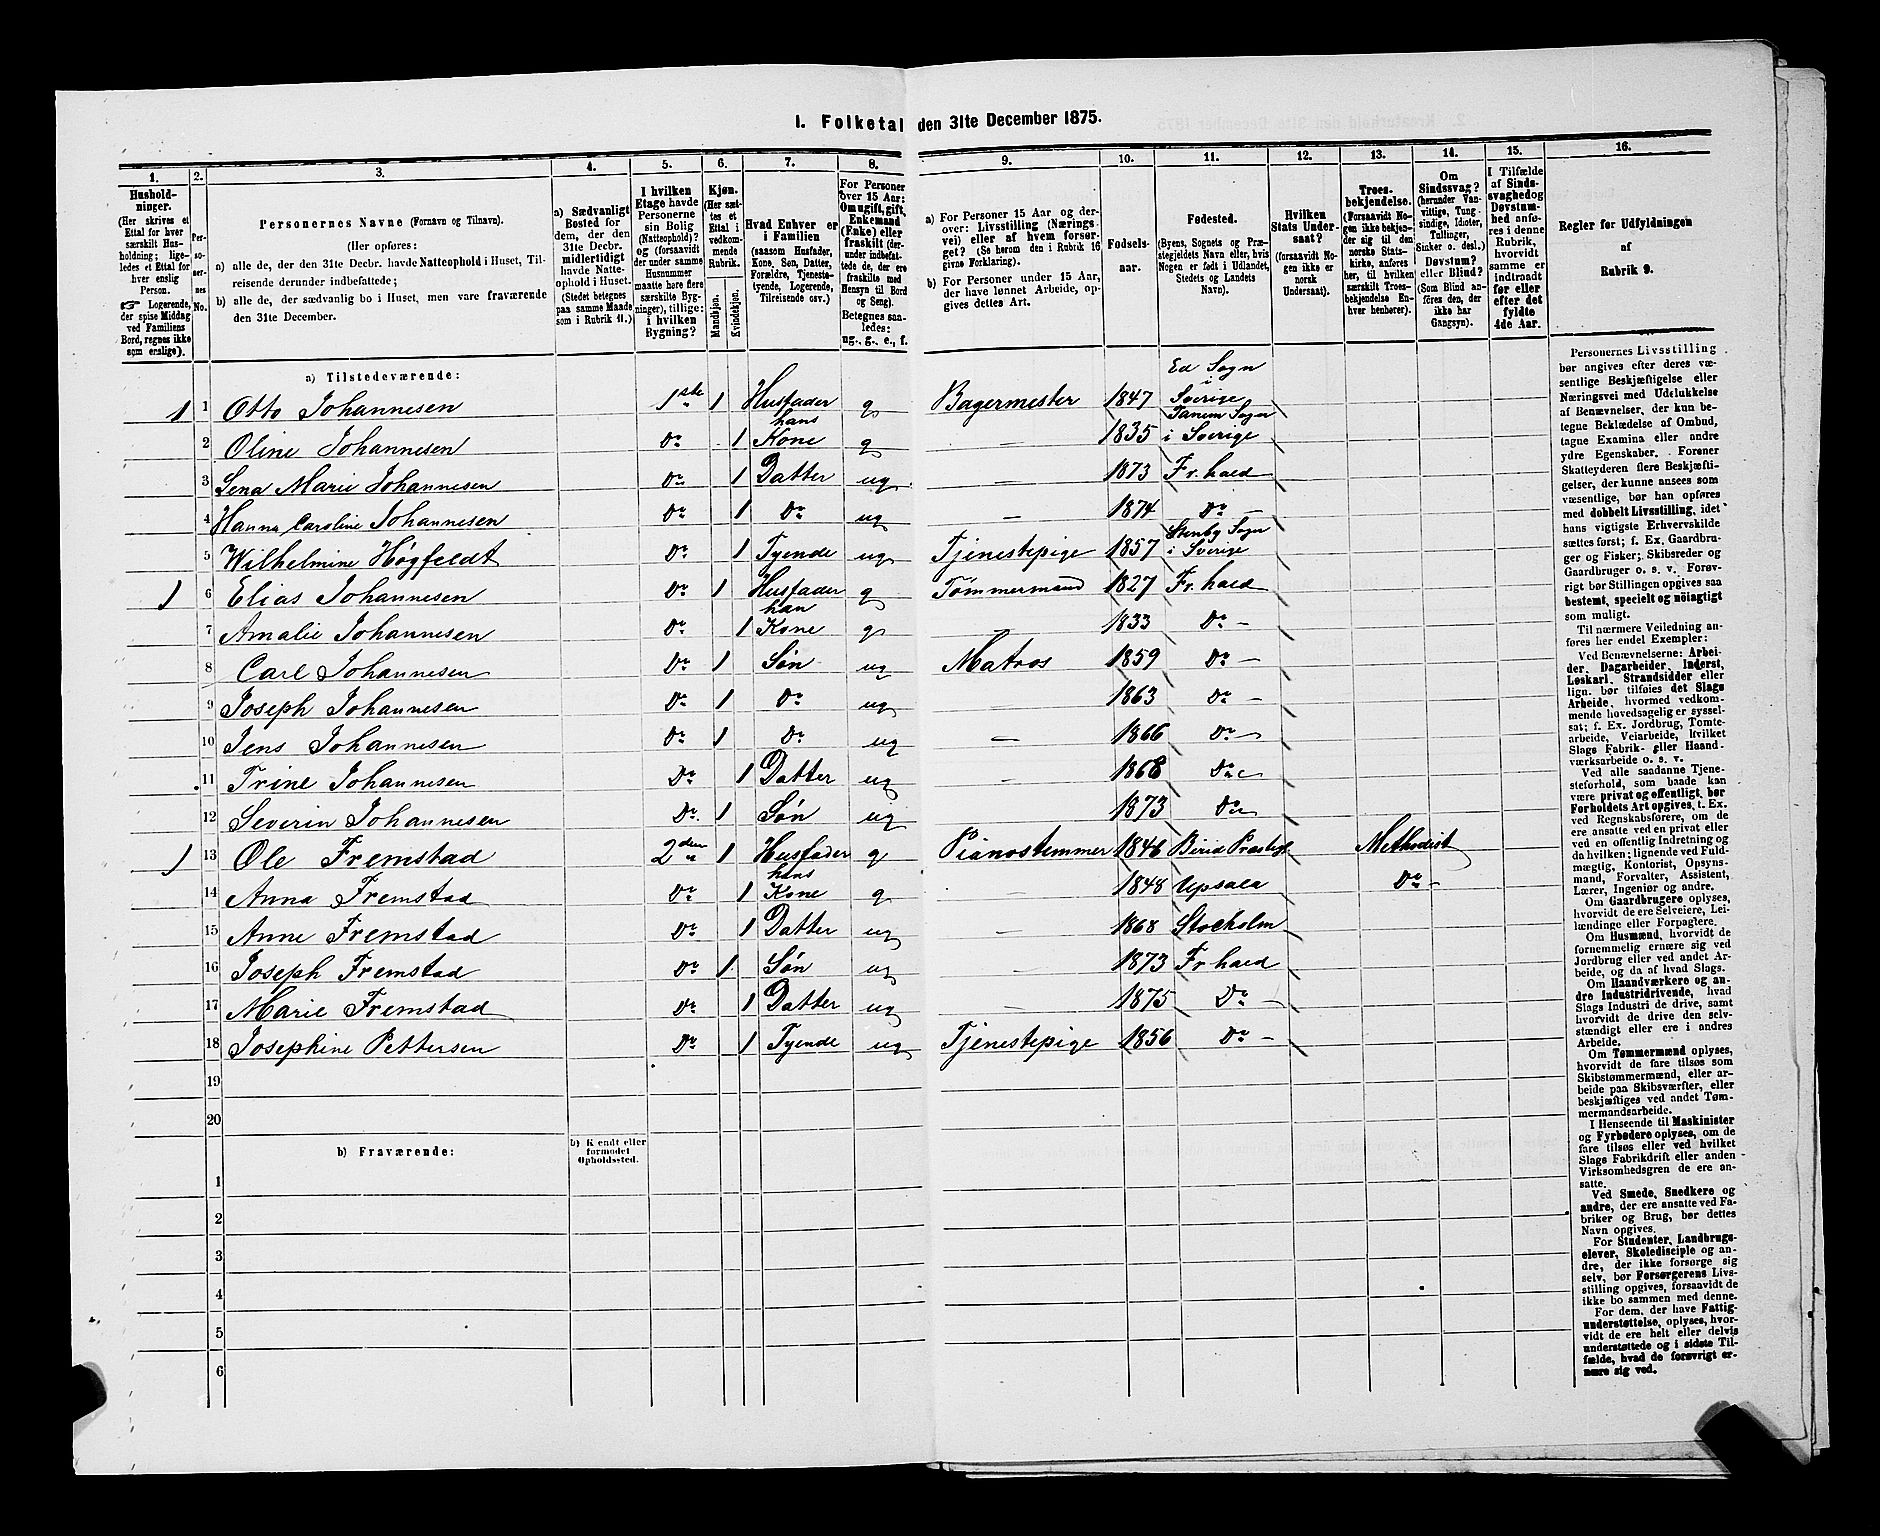 I. Folketal den 31te December 1875.
1. 2. 3. 4. 5. 6. 7. 8. 9. 10. 11. 12. 13. 14. 15. 16.
Husholdninger.
(Her skrives et Ettal for hver særskilt Husholdning; ligeledes et Ettal for hver enslig Person.
☞ Logerende, der spise Middag ved Familiens Bord, regnes ikke som enslige).
Personernes No.
Personernes Navne (Fornavn og Tilnavn).
(Her opføres:
a) alle de, der den 31te Decbr. havde Natteophold i Huset, Tilreisende derunder indbefattede;
b) alle de, der sædvanlig bo i Huset, men vare fraværende den 31te December.
a) Sædvanligt Bosted for dem, der den 31te Decbr. midlertidigt havde Natteophold i Huset.
(Stedet betegnes paa samme Maade som i Rubrik 11.)
I hvilken Etage havde Personerne sin Bolig (Natteophold)? og (forsaavidt der under samme Husnummer maatte høre flere særskilte Bygninger), tillige: i hvilken Bygning?
Kjøn. (Her sættes et Ettal i vedkommende Rubrik.
Mandkjøn. Kvindekjøn.
Hvad Enhver er i Familien (saasom Husfader, Kone, Søn, Datter, Forældre, Tjenestetyende, Logerende, Tilreisende osv.)
For Personer over 15 Aar: Om ugift, gift, Enkemand (Enke) eller fraskilt (derunder indbefattede de, der ere fraskilte med Hensyn til Bord og Seng).
Betegnes saaledes: ug., g., e., f.
a) For Personer 15 Aar og derover: Livsstilling (Næringsvei) eller af hvem forsørget? (Se herom den i Rubrik 16 givne Forklaring).
b) For Personer under 15 Aar, der have lønnet Arbeide, opgives dettes Art.
Fødselsaar.
Fødested.
(Byens, Sognets og Præstegjeldets Navn eller, hvis Nogen er født i Udlandet, Stedets og Landets Navn).
Hvilken Stats Undersaat? (forsaavidt Nogen ikke er norsk Undersaat).
Troesbekjendelse. (Forsaavidt Nogen ikke bekjender sig til den norske Statskirke, anføres her, til hvilken særskilt Troesbekjendelse Enhver henhører).
Om Sindssvag? (herunder Vanvittige, Tungsindige, Idioter, Tullinger, Sinker o. desl.) Døvstum? eller Blind? (Som Blind anføres den, der ikke har Gangsyn).
I Tilfælde af Sindssvaghed og Døvstumhed anføres i denne Rubrik, hvorvidt samme er indtraadt før eller efter det fyldte 4de Aar.
Regler for Udfyldningen af Rubrik 9.
a) Tilstedeværende:
1 1 Otto Johannesen 1ste 1 Husfader g Bagermester 1847 Ed Sogn i Sverige
2 Oline Johannesen Do 1 hans Kone g — 1835 Tanem Sogn i Sverige
3 Lena Marie Johannesen Do 1 Datter ug — 1873 Fr.hald
4 Hanna Caroline Johannesen Do 1 Do ug — 1874 Do —
5 Wilhelmine Høgfeldt Do 1 Tyende ug Tjenestepige 1857 Stenby Sogn i Sverige
1 6 Elias Johannesen Do 1 Husfader g Tømmermand 1827 Fr.hald
7 Amalie Johannesen Do 1 han Kone g — 1833 Do —
8 Carl Johannesen Do 1 Søn ug Matros 1859 Do —
9 Joseph Johannesen Do 1 Do ug — 1863 Do —
10 Jens Johannesen Do 1 Do ug — 1866 Do —
11 Trine Johannesen Do 1 Datter ug — 1868 Do
12 Severin Johannesen Do 1 Søn ug — 1873 Do
1 13 Ole Fremstad 2den 1 Husfader g Pianostemmer 1846 Birid Præstgt Methodist
14 Anna Fremstad Do 1 hans Kone g — 1848 Upsala Do —
15 Anne Fremstad Do 1 Datter ug — 1868 Stocholm
16 Joseph Fremstad Do 1 Søn ug — 1873 Fr hald
17 Marie Fremstad Do 1 Datter ug — 1875 Do —
18 Josephine Pettersen Do 1 Tyende ug Tjenestepige 1856 Do —
19
20
b) Fraværende:
b) Kendt eller formodet Opholdssted.
1
2
3
4
5
6
Personernes Livsstilling
bør angives efter deres væ-
sentlige Beskjæftigelse eller
Næringsvei med Udelukkelse
af Benævnelser, der kun be-
tegne Beklædelse af Ombud,
tagne Examina eller andre
ydre Egenskaber. Forener
Skatteyderen flere Beskjæfti-
gelser, der kunne ansees som
væsentlige, bør han opføres
med dobbelt Livsstilling, idet
hans vigtigste Erhvervskilde
sættes først; f. Ex. Gaardbru-
ger og Fisker; Skibsreder og
Gaardbruger o. s. v. Forøv-
rigt bør Stillingen opgives saa
bestemt, specielt og nöiagtigt
som muligt.
Til nærmere Veiledning an-
føres her endel Exempler:
Ved Benævnelserne: Arbei-
der, Dagarbeider, Inderst,
Løskarl, Strandsidder eller
lign. bør tilføies det Slags
Arbeide, hvormed vedkom-
mende hovedsagelig er syssel-
sat; f. Ex. Jordbrug, Tomte-
arbeide, Veiarbeide, hvilket
Slags Fabrik- eller Haand-
værksarbeide o. s. v.
Ved alle saadanne Tjene-
steforhold, som baade kan
være privat og offentligt, bør
Forholdets Art opgives, t. Ex.
ved Regnskabsførere, om de
ere ansatte ved en privat eller
ved en offentlig Indretning og
da hvilken; lignende ved Fuld-
mægtig, Kontorist, Opsyns-
mand, Forvalter, Assistent,
Lærer, Ingeniør og andre.
Om Gaardbrugere oplyses,
hvorvidt de ere Selveiere, Lei-
lændinge eller Forpagtere.
Om Husmænd, hvorvidt de
fornemmelig ernære sig ved
Jordbrug eller ved andet Ar-
beide, og da af hvad Slags.
Om Haandværkere og an-
dre Industridrivende, hvad
Slags Industri de drive, samt
hvorvidt de drive den selv-
stændigt eller ere i andres
Arbeide.
Om Tømmermænd oplyses,
hvorvidt de fare tilsøs som
Skibstømmermænd, eller ar-
beide paa Skibsværfter, eller
beskjæftiges ved andet Tøm-
mermandsarbeide.
I Henseende til Maskinister
og Fyrbødere oplyses, om de
fare tilsøs eller ved hvilket
Slags Fabrikdrift eller anden
Virksomhedsgren de ere an-
satte.
Ved Smede, Snedkere og
andre, der ere ansatte ved Fa-
briker og Brug, bør dettes
Navn opgives.
For Studenter, Landbrugs-
elever, Skoledisciple og an-
dre, der ikke forsørge sig
selv, bør Forsørgerens Livs-
stilling opgives, forsaavidt de
ikke bo sammen med denne.
For dem, der have Fattig-
understøttelse, oplyses, hvor-
vidt de ere helt eller delvis
understøttede og i sidste Til-
fælde, hvad de forøvrigt er-
nære sig ved.